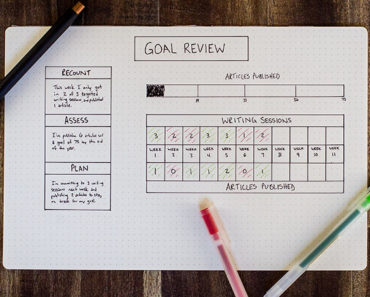 GOAL REVIEW
RECOUNT
This week I only got
in 2 of 3 targeted
writing sessions, and published
1 article.
ASSESS
I've published 6 articles w/
a goal of 75 by the end
of the year.
PLAN
I'm committing to 3 writing
sessions next week and
publishing 2 articles to stay
on track for my goal.
ARTICLES PUBLISHED
75
WRITING SESSIONS
3 2 2 3 3 1 2
WEEK WEEK WEEK WEEK WEEK WEEK WEEK WEEK WEEK WEEK WEEK
1 2 3 4 5 6 7 8 9 10 11
1 0 1 1 2 0 1
ARTICLES PUBLISHED